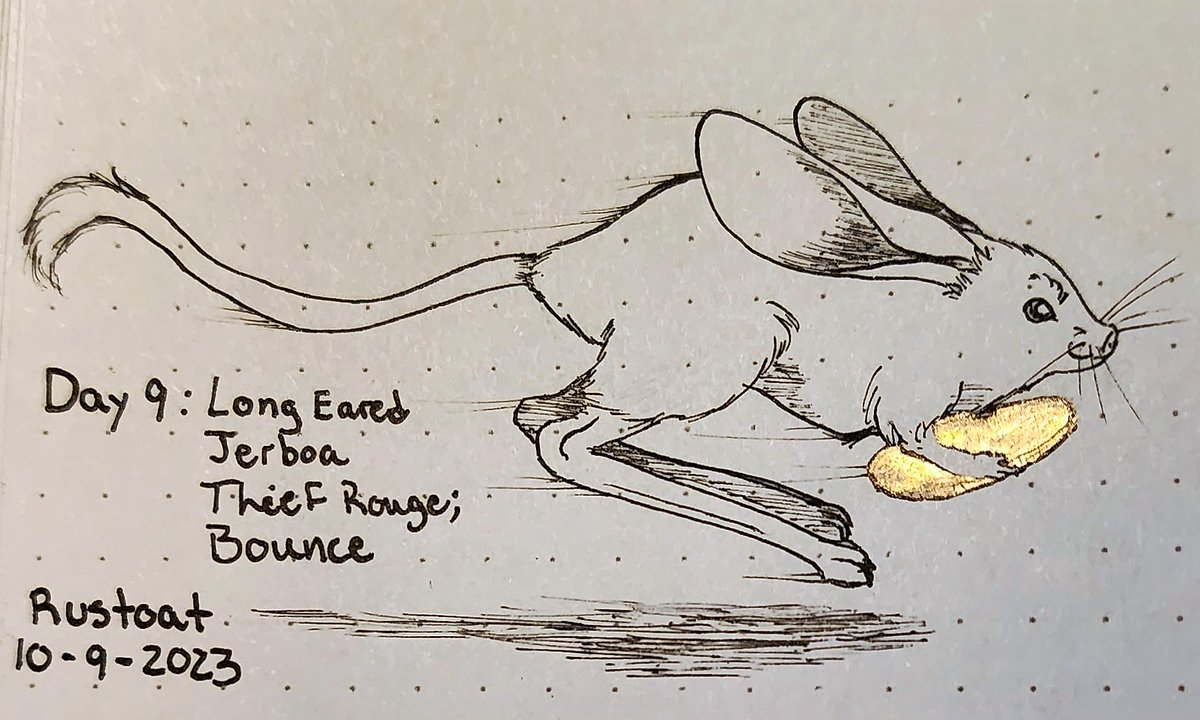 Day 9: Long Eared
Jerboa
Thief Rouge;
Bounce
Rustoat
10-9-2023